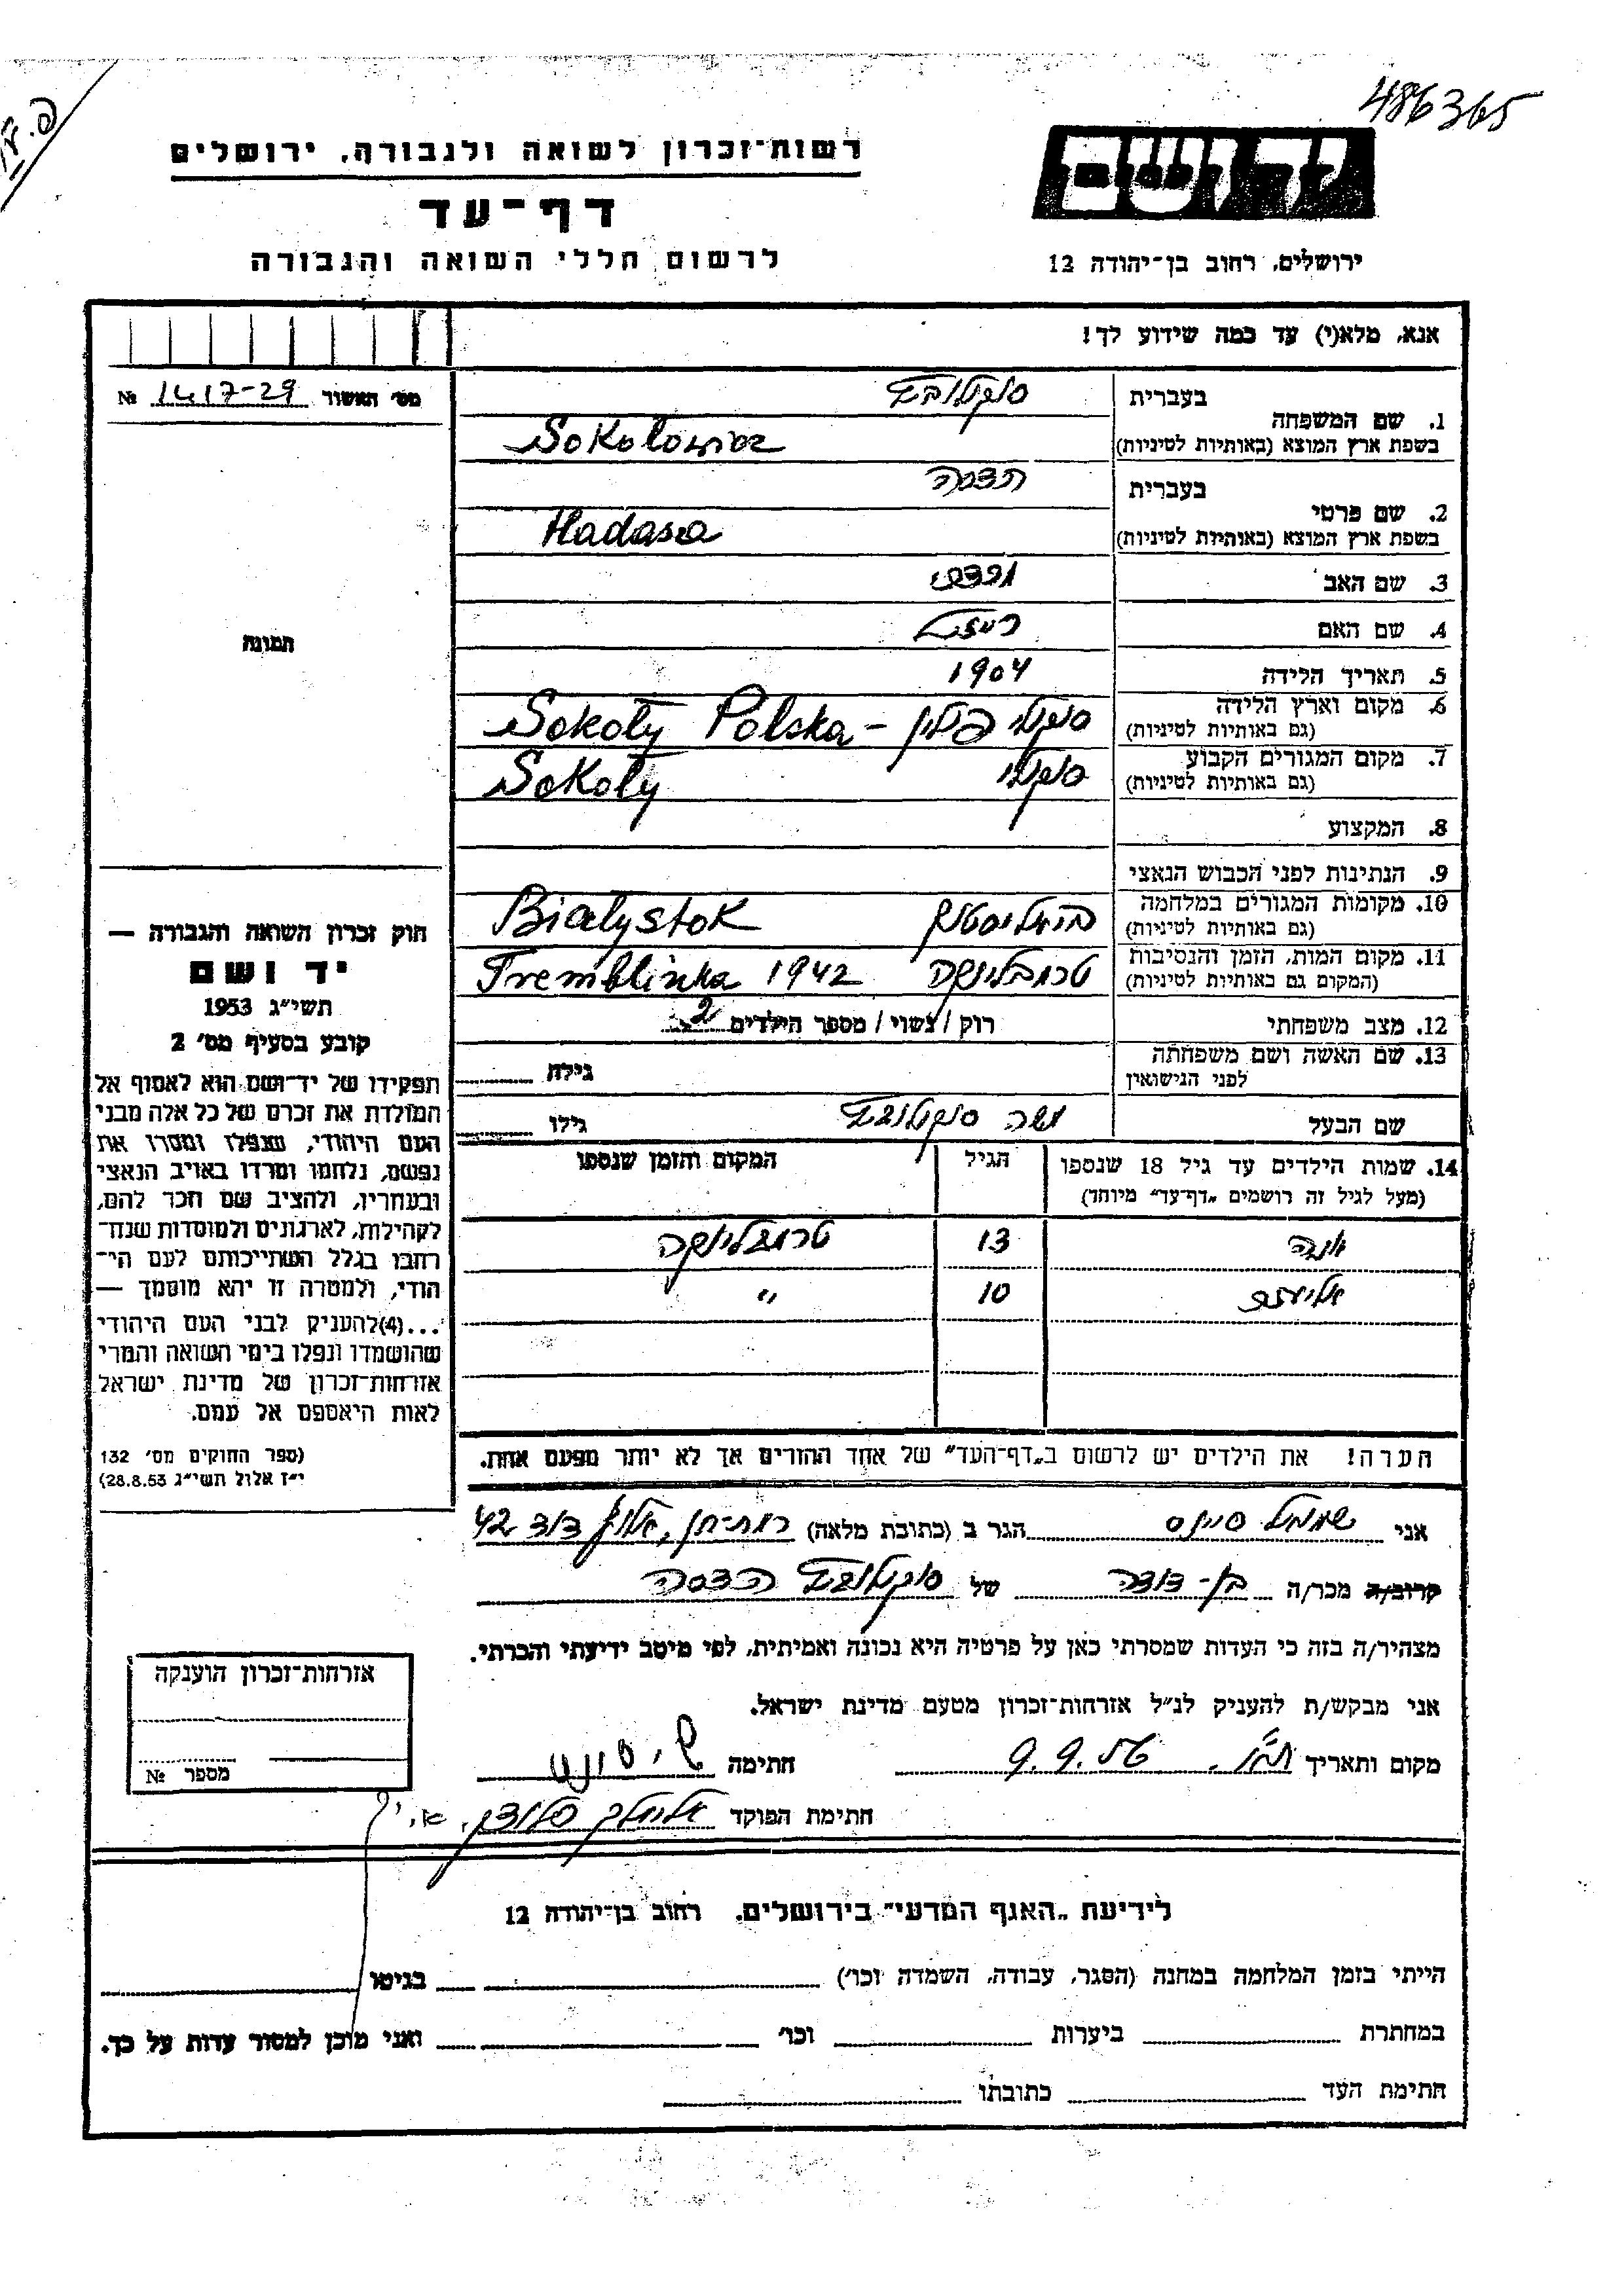 486365
רשות־זכרון לשואה ולגבורה, ירושלים
דף־עד
לרשום חללי השואה והגבורה
יד ושם
ירושלים, רחוב בן־יהודה 12
אנא, מלא(י) עד כמה שידוע לך!
מס׳ האשור 1417-29 №
1. שם המשפחה
בעברית
בשפת ארץ המוצא (באותיות לטיניות) Sokołowicz
2. שם פרטי
בעברית הדסה
בשפת ארץ המוצא (באותיות לטיניות) Hadasa
3. שם האב
4. שם האם
5. תאריך הלידה 1904
6. מקום וארץ הלידה סוקולי פולין - Sokoły Polska
(גם באותיות לטיניות)
7. מקום המגורים הקבוע סוקולי Sokoły
(גם באותיות לטיניות)
8. המקצוע
9. הנתינות לפני הכבוש הנאצי
10. מקומות המגורים במלחמה ביאליסטוק Białystok
(גם באותיות לטיניות)
11. מקום המות, הזמן והנסיבות טרמבלינקה Tremblinka 1942
(המקום גם באותיות לטיניות)
12. מצב משפחתי רוק / נשוי / מספר הילדים 2
13. שם האשה ושם משפחתה גילה
לפני הנישואין
שם הבעל משה גילו
14. שמות הילדים עד גיל 18 שנספו הגיל המקום והזמן שנספו
(מעל לגיל זה רושמים „דף־עד״ מיוחד)
13 טרמבלינקה
אליעזר 10 ״
הערה! את הילדים יש לרשום ב„דף־העד״ של אחד ההורים אך לא יותר מפעם אחת.
תמונה
חוק זכרון השואה והגבורה —
יד ושם
תשי״ג 1953
קובע בסעיף מס׳ 2
תפקידו של יד־ושם הוא לאסוף אל
המולדת את זכרם של כל אלה מבני
העם היהודי, שנפלו ומסרו את
נפשם, נלחמו ומרדו באויב הנאצי
ובעוזריו, ולהציב שם וזכר להם,
לקהילות, לארגונים ולמוסדות שנח־
רבו בגלל השתייכותם לעם הי־
הודי, ולמטרה זו יהא מוסמך —
...(4)להעניק לבני העם היהודי
שהושמדו ונפלו בימי השואה והמרי
אזרחות־זכרון של מדינת ישראל
לאות היאספם אל עמם.
(ספר החוקים מס׳ 132
י״ז אלול תשי״ג 28.8.53)
אני שמואל הגר ב (כתובת מלאה) רמת-חן, אלוף דוד 42
קרוב/ה מכר/ה בן-דודה של הדסה
מצהיר/ה בזה כי העדות שמסרתי כאן על פרטיה היא נכונה ואמיתית, לפי מיטב ידיעתי והכרתי.
אני מבקש/ת להעניק לנ״ל אזרחות־זכרון מטעם מדינת ישראל.
מקום ותאריך 9.9.56 חתימה
חתימת הפוקד
אזרחות־זכרון הוענקה
מספר №
לידיעת „האגף המדעי״ בירושלים, רחוב בן־יהודה 12
הייתי בזמן המלחמה במחנה (הסגר, עבודה, השמדה וכו׳) בגיטו
במחתרת ביערות וכו׳ ואני מוכן למסור עדות על כך.
חתימת העד כתובתו